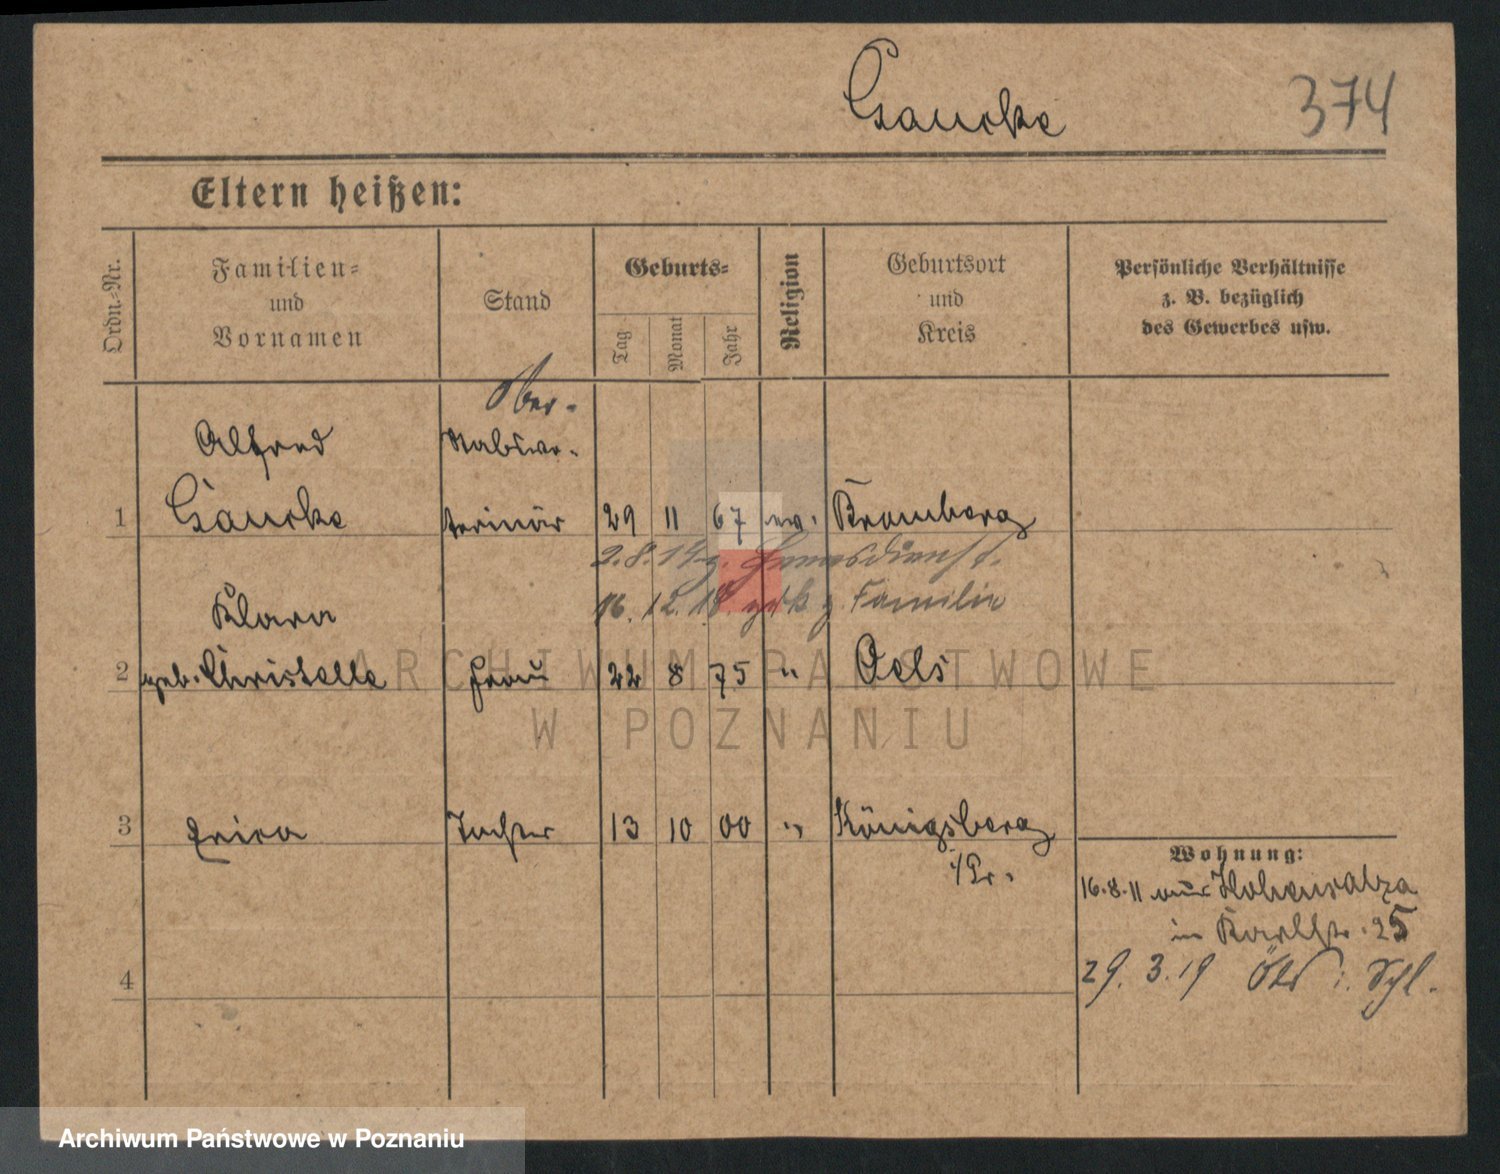 Gaucke
374
Eltern heißen:
Ordn.-Nr.
Familien-
und
Vornamen
Stand
Geburts-
Tag
Monat
Jahr
Religion
Geburtsort
und
Kreis
Persönliche Verhältnisse
z. B. bezüglich
des Gewerbes usw.
Ober-
Alfred
Stabsve-
1 Gaucke terinär 29 11 67 ev. Bromberg
2.8.14 z. Heeresdienst.
16.12.18. zck z. Familie
Klara
2 geb. Christelle Frau 22 8 75 " Oels
3 Erica Tochter 13 10 00 " Königsberg
i/Pr.
Wohnung:
16.8.11 aus Hohensalza
in Karlstr. 25
4
29.3.19 Öls i. Schl.
ARCHIWUM PAŃSTWOWE
W POZNANIU
Archiwum Państwowe w Poznaniu